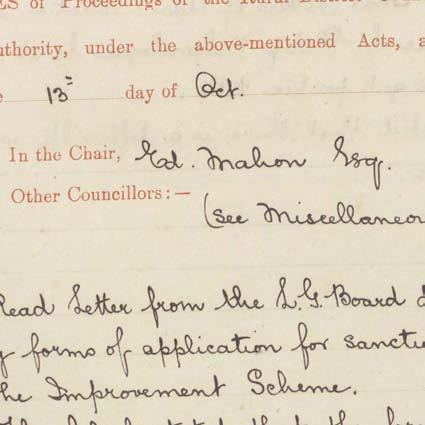 ES of Proceedings of the Rural District
uthority, under the above-mentioned Acts, a
e 13= day of Oct.
In the Chair, Ed. Mahon Esq.
Other Councillors:—
(see Miscellaneou
Read Letter from the L.G. Board
y forms of application for sanctio
he Improvement Scheme.